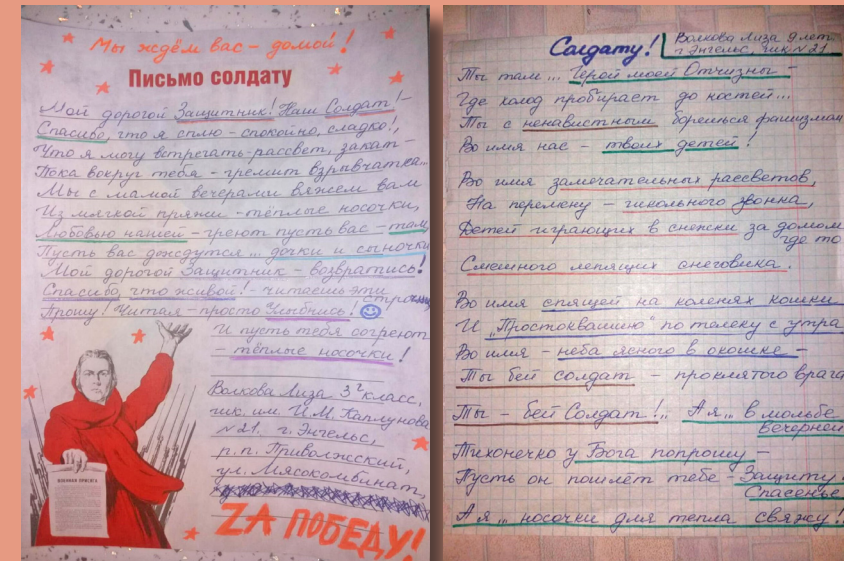 Мы ждём вас – домой!
Письмо солдату
Мой дорогой Защитник! Наш Солдат! –
Спасибо, что я сплю – спокойно, сладко!,
Что я могу встречать – рассвет, закат –
Пока вокруг тебя – гремит взрывчатка...
Мы с мамой вечерами вяжем вам
Из мягкой пряжи – тёплые носочки,
Любовью нашей – греют пусть вас – там,
Пусть вас дождутся... дочки и сыночки
Мой дорогой Защитник – возвратись!
Спасибо, что живой! – читаешь эти
строчки
Прошу! Читая – просто Улыбнись!
И пусть тебя согреют
– тёплые носочки!
Волкова Лиза 3² класс,
шк. им. И.М. Каплунова
№21. г. Энгельс,
р.п. Приволжский,
ул. Мясокомбинат,
ВОЕННАЯ ПРИСЯГА
ZА ПОБЕДУ!
Солдату!
Волкова Лиза 9 лет.
г. Энгельс, шк №21
Ты там... Герой моей Отчизны –
Где холод пробирает до костей...
Ты с ненавистным борешься фашизмом
Во имя нас – твоих детей!
Во имя замечательных рассветов,
На перемену – школьного звонка,
Детей играющих в снежки за домом
где то
Смешного лепящих снеговика.
Во имя спящей на коленях кошки
И „Простоквашино" по телеку с утра
Во имя – неба ясного в окошке –
Ты бей солдат – проклятого врага
Ты – бей Солдат!.. А я... в мольбе
вечерней
Тихонечко у Бога попрошу –
Пусть он пошлет тебе – Защиту!
Спасенье
А я... носочки для тепла свяжу!